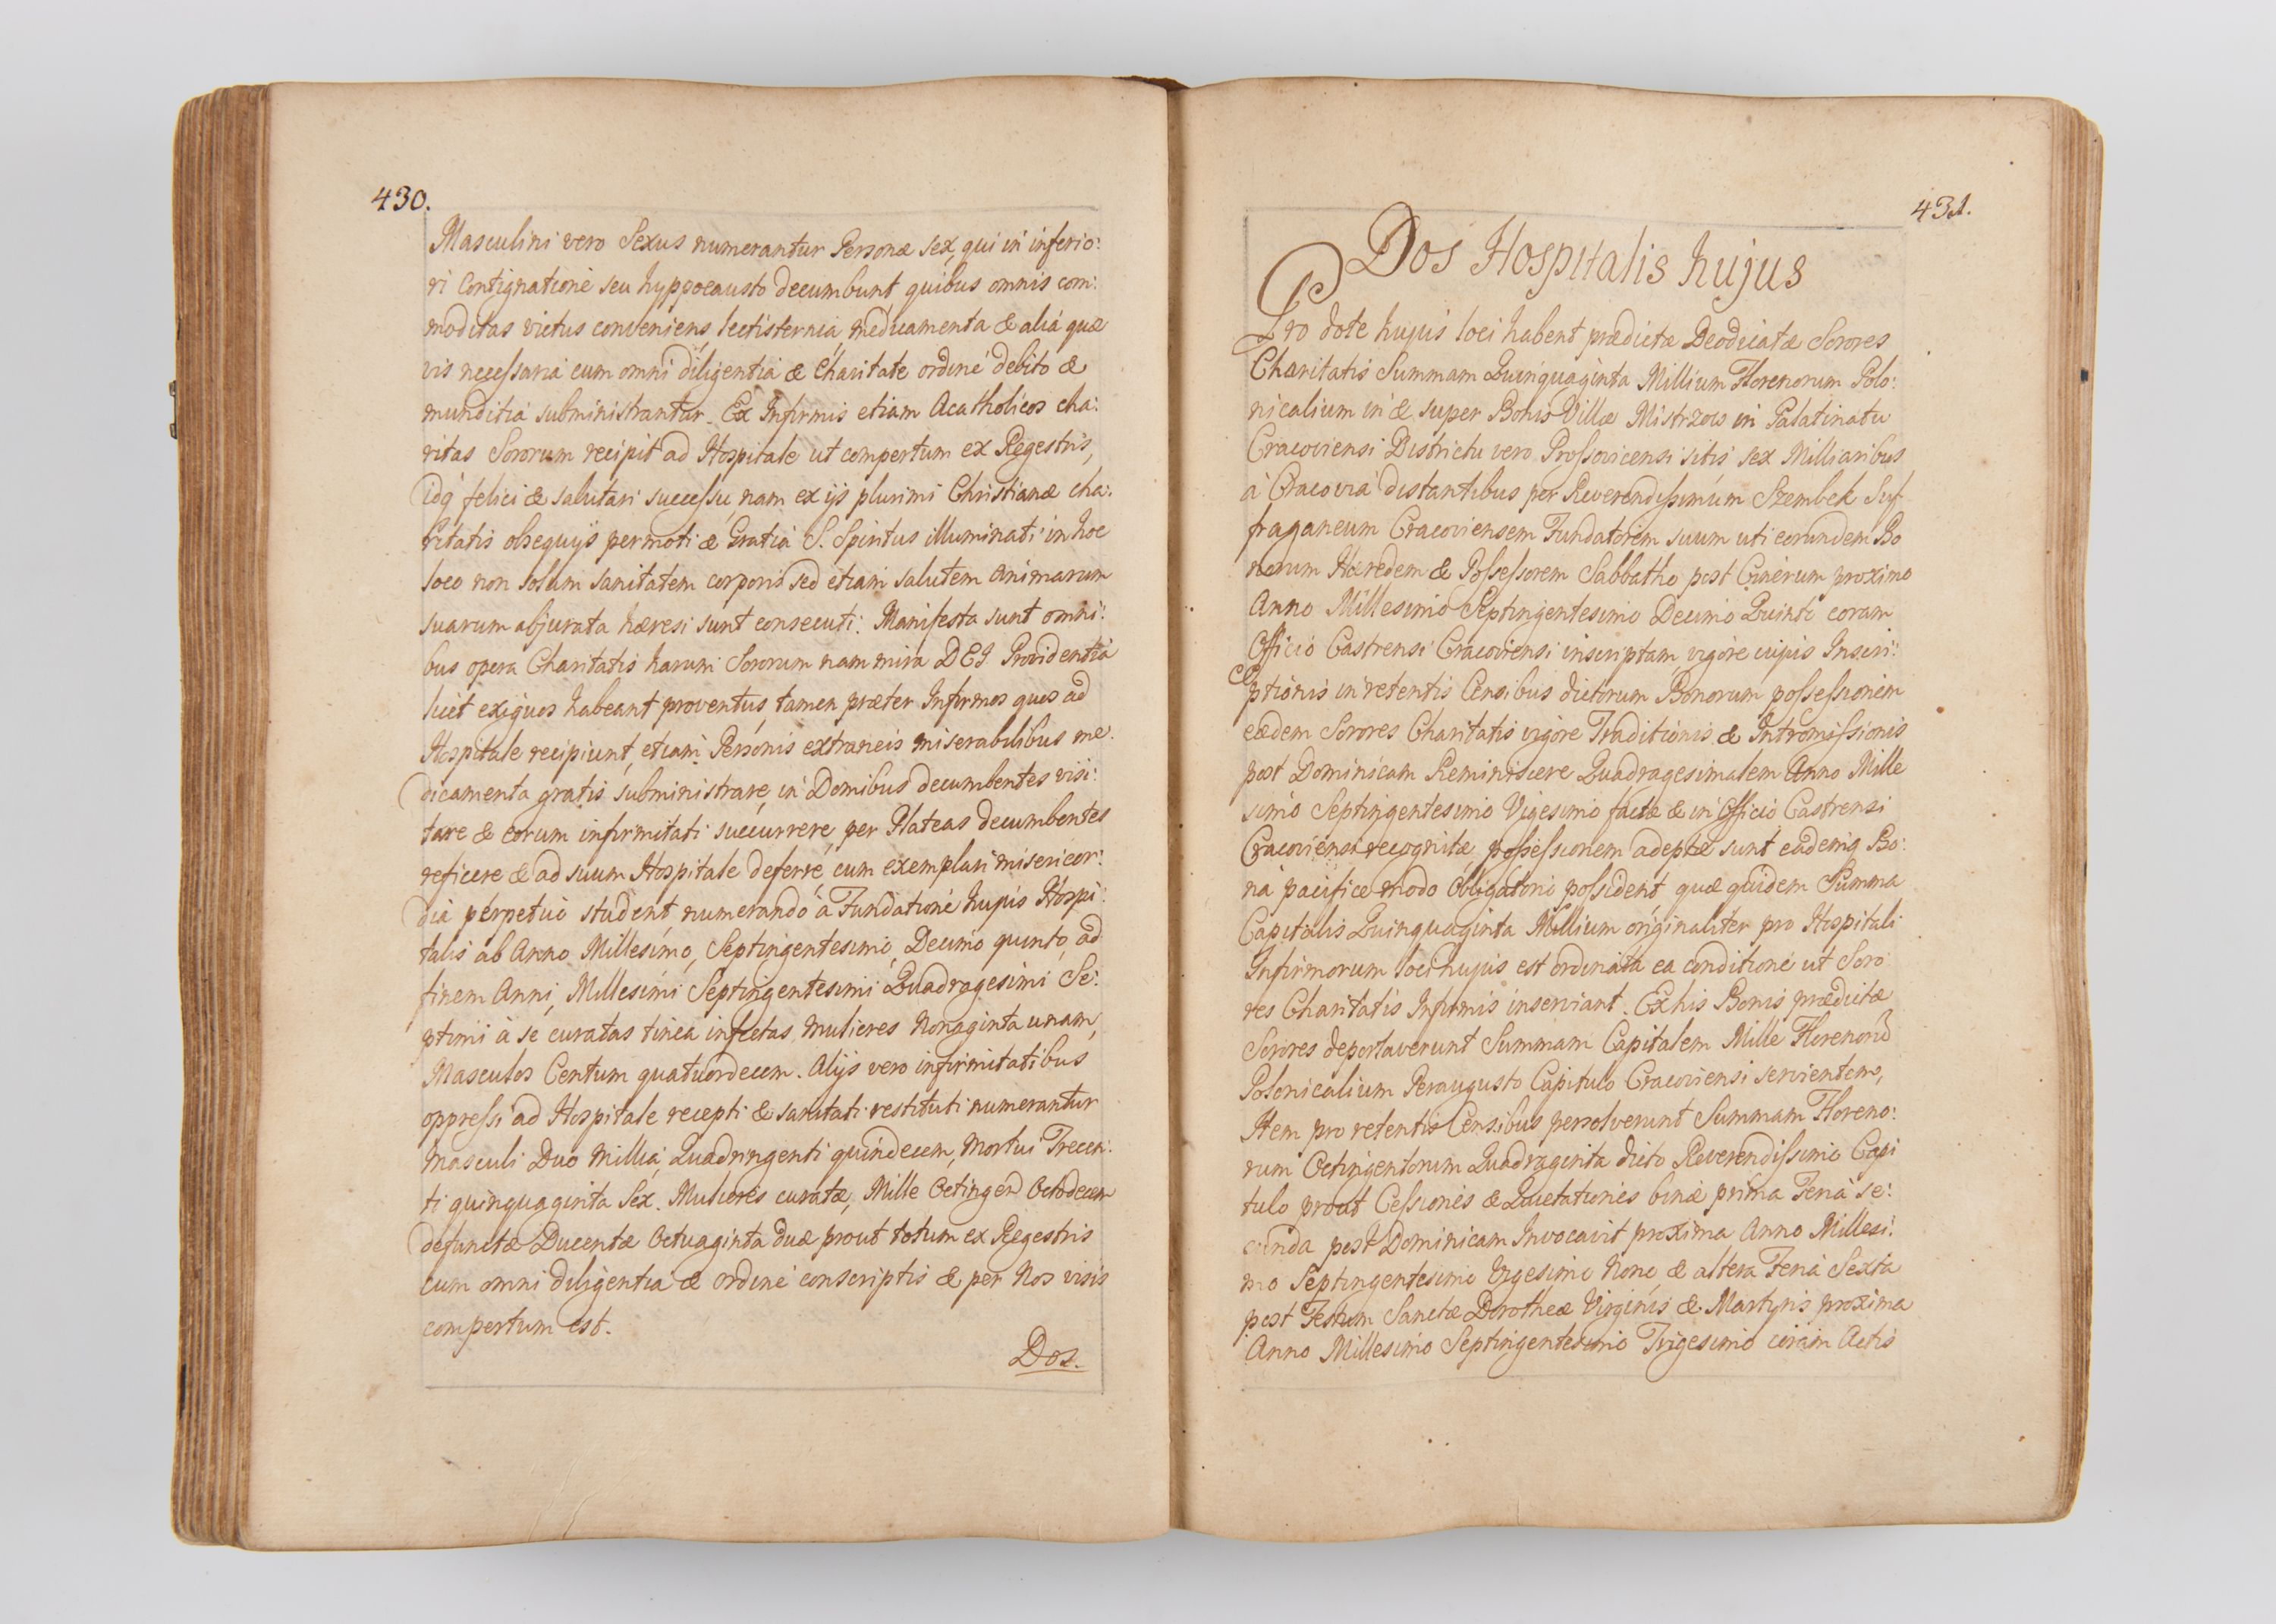 430.
Masculini vero Sexus numerantur Personæ sex, qui in inferio:
ri Contignatione seu hyppocausto decumbunt, quibus omnis com:
moditas victus conveniens, lectisternia, medicamenta & alia quæ
vis necessaria cum omni diligentia & Charitate ordine debito &
munditia subministrantur. Ex Infirmis etiam Acatholicos cha:
ritas Sororum recipit ad Hospitale ut compertum ex Regestris,
idq felici & salutari successu, nam ex ijs plurimi Christianæ cha:
ritatis obsequijs permoti & Gratia S. Spiritus illuminati in hoc
loco non solum sanitatem corporis sed etiam salutem Animarum
suarum abjurata hæresi sunt consecuti. Manifesta sunt omni:
bus opera Charitatis harum Sororum nam mira DEI Providentia
licet exiguos habeant proventus, tamen præter Infirmos quos ad
Hospitale recipiunt, etiam Personis extraneis miserabilibus me:
dicamenta gratis subministrare, in Domibus decumbentes visi:
tare & eorum infirmitati succurrere, per Plateas decumbentes
reficere & ad suum Hospitale deferre, cum exemplari misericor:
dia perpetuo student numerando a Fundatione hujus Hospi:
talis ab Anno Millesimo, Septingentesimo, Decimo quinto, ad
finem Anni, Millesimi Septingentesimi Quadragesimi Se:
ptimi à se curatas tinea infectas mulieres Nonaginta unam,
Masculos Centum quatuordecem. Alijs vero infirmitatibus
oppressi ad Hospitale recepti & sanitati restituti numerantur
Masculi Duo Millia, Quadringenti quindecem, Mortui Trecen:
ti quinquaginta Sex. Mulieres curatæ, Mille Octingen Octodecem
defunctæ Ducentæ Octuaginta duæ prout totum ex Regestris
cum omni diligentia & ordine conscriptis & per Nos visis
compertum est.
Dos.
431.
Dos Hospitalis hujus
Pro dote hujus loci habent prædictæ Deodicatæ Sorores
Charitatis Summam Quinquaginta Millium Florenorum Polo:
nicalium in & super Bonis Villæ Mistrzow in Palatinatu
Cracoviensi Districtu vero Prossovicensi sitis sex Milliaribus
à Cracovia distantibus per Reverendissimum Szembek Suf
fraganeum Cracoviensem Fundatorem suum uti eorundem Bo
norum Hæredem & Possessorem Sabbatho post Cinerum proximo
Anno Millesimo Septingentesimo Decimo Quinto coram
Officio Castrensi Cracoviensi inscriptam, vigore cujus Inscri:
ptionis in retentis Censibus dictorum Bonorum possessionem
eædem Sorores Charitatis vigore Traditionis & Intromissionis
post Dominicam Reminiscere Quadragesimalem Anno Mille
simo Septingentesimo Vigesimo factæ & in Officio Castrensi
Cracoviensi recognitæ, possessionem adeptæ sunt eademq Bo:
na pacifice modo Obligatorio possident, quæ quidem Summa
Capitalis Quinquaginta Millium originaliter pro Hospitali
Infirmorum loci hujus est ordinata ea conditione ut Soro
res Charitatis Infirmis inserviant. Ex his Bonis prædictæ
Sorores deportaverunt Summam Capitalem Mille
Polonicalium Peraugusto Capitulo Cracoviensi servientem,
Item pro retentis Censibus persolverunt Summam Floreno:
rum Octingentorum Quadraginta dicto Reverendissimo Capi
tulo prout Cessiones & Quietationes binæ prima Feria se:
cunda post Dominicam Invocavit proxima Anno Millesi:
mo Septingentesimo Vigesimo Nono, & altera Feria Sexta
post Festum Sanctæ Dorotheæ Virginis & Martyris proxima
Anno Millesimo Septingentesimo Trigesimo coram Actis